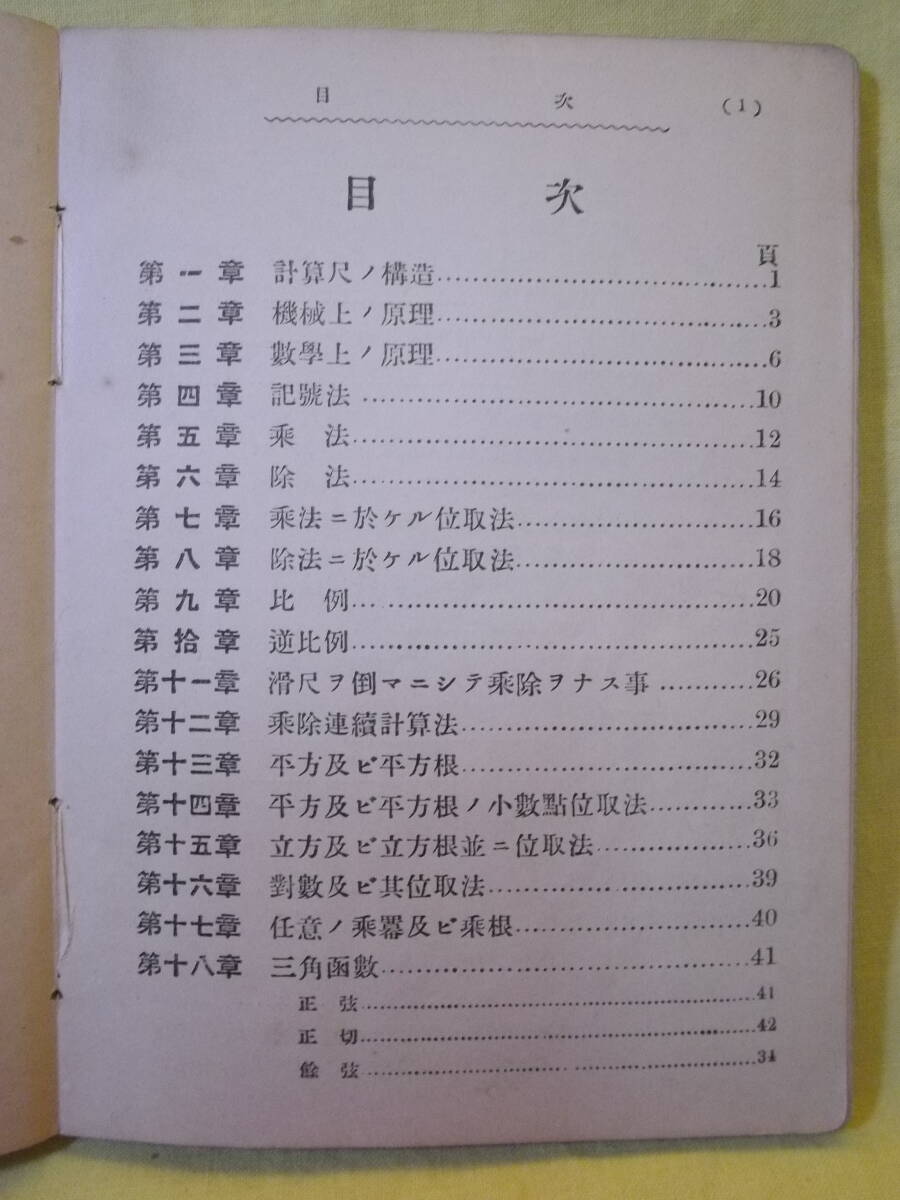 目次 (1)
目次
頁
第一章 計算尺ノ構造……………………1
第二章 機械上ノ原理……………………3
第三章 數學上ノ原理……………………6
第四章 記號法……………………10
第五章 乘法……………………12
第六章 除法……………………14
第七章 乘法ニ於ケル位取法……………………16
第八章 除法ニ於ケル位取法……………………18
第九章 比例……………………20
第拾章 逆比例……………………25
第十一章 滑尺ヲ倒マニシテ乘除ヲナス事…………26
第十二章 乘除連續計算法……………………29
第十三章 平方及ビ平方根……………………32
第十四章 平方及ビ平方根ノ小數點位取法…………33
第十五章 立方及ビ立方根並ニ位取法……………36
第十六章 對數及ビ其位取法……………………39
第十七章 任意ノ乘羃及ビ乘根……………………40
第十八章 三角函數……………………41
正弦……………………41
正切……………………42
餘弦……………………34